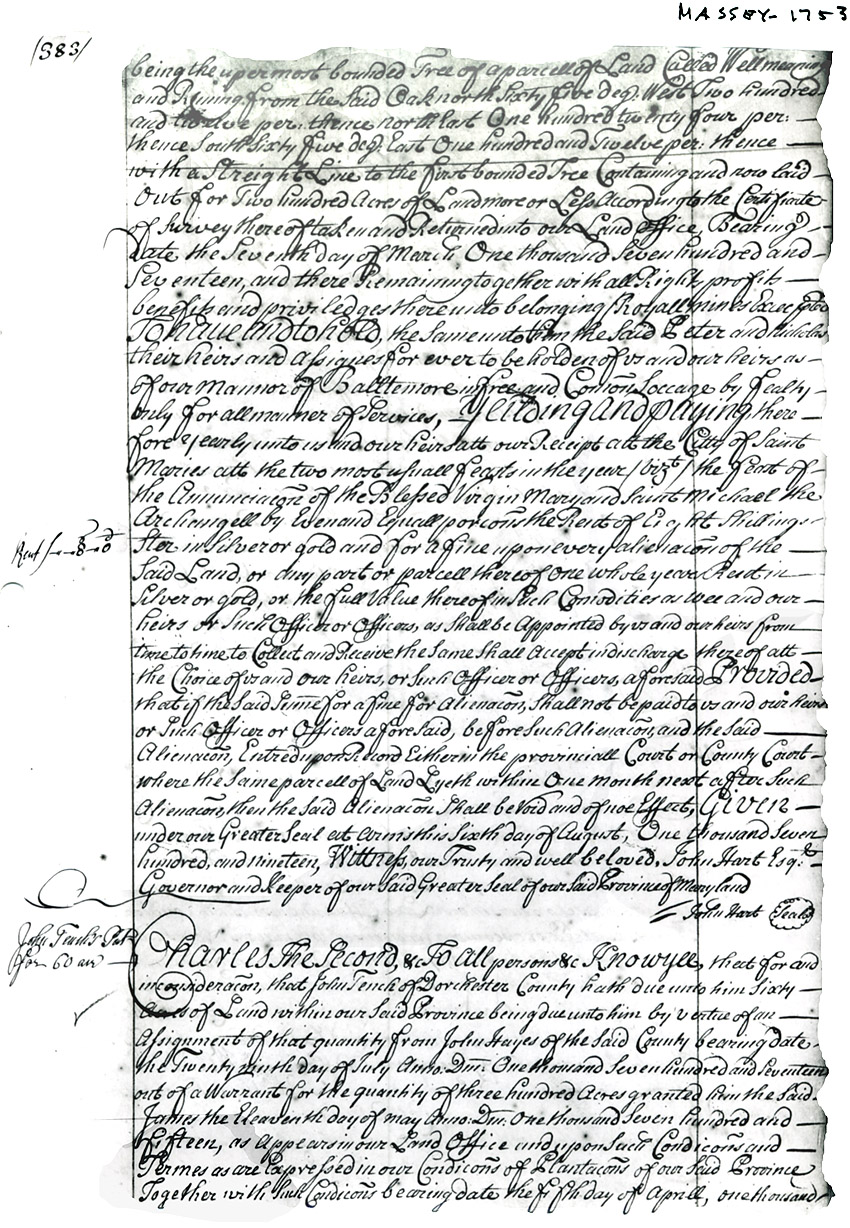 MASSEY - 1753
/383/
being the upermost bounded Tree of a parcell of Land Called Wellmeaning
and Runing from the Said Oak north Sixty five deg: West Two hundred
and twelve per: thence north East One hundred twenty four per:
thence South Sixty five deg: East One hundred and Twelve per: thence
with a Streight Line to the first bounded Tree Containing and now laid
Out for Two hundred Acres of Land more or Less According to the Certificate
of Survey thereof taken and Returned into our Land Office, Bearing
Date the Seventh day of March One thousand Seven hundred and
Seventeen, and there Remaining together with all Right profits
benefits and priviledges thereunto belonging Royall mines Excepted
To have and to hold, the Same unto them the Said Peter and Nicholas
their heirs and assignes for ever to be holden of us and our heirs as
of our Mannor of Balltemore in free and Comon Soccage by fealty
only for all manner of Services, Yeilding and paying there
fore yearly unto us and our heirs att our Receipt att the Citty of Saint
Maries att the two most usuall feasts in the year /vizt/ the feast of
the Annunciacon of the Blessed Virgin Mary and Saint Michael the
Archangell by Even and Equall porcons the Rent of Eight Shillings
Rent £ - 8 - 0
Ster in Silver or gold and for a fine upon every alienacon of the
Said Land, or any part or parcell thereof One whole years Rent in
Silver or gold, or the full Value thereof in Such Comodities as wee and our
heirs or Such Officer or Officers, as Shall be Appointed by us and our heirs from
time to time to Collect and Receive the Same Shall Accept in discharge thereof att
the Choice of us and our heirs, or Such Officer or Officers, aforesaid Provided
that if the Said Sume for a fine for Alienacon, Shall not be paid to us and our heirs
or Such Officer or Officers aforesaid, before Such Alienacon, and the Said
Alienacon, Entred upon Record Either in the provinciall Court or County Court
where the Same parcell of Land Lyeth within One month next after Such
Alienacon, then the Said Alienacon Shall be Void and of noe Effect, Given
under our Greater Seal at Arms this Sixth day of August, One thousand Seven
hundred, and nineteen, Wittness, our Trusty and well beloved, John Hart Esqr.
Governor and Keeper of our Said Greater Seal of our Said Province of Maryland
John Hart (Seale)
John Tench's Pat
for 60 acr
Charles The Second, &c To All persons &c Know yee, that for and
in consideracon, that John Tench of Dorchester County hath due unto him Sixty
Acres of Land within our Said Province being due unto him by vertue of an
Assignment of that quantity from John Hayes of the Said County bearing date
the Twenty ninth day of July Anno: Dm: One thousand Seven hundred and Seventeen
out of a Warrant for the quantity of three hundred Acres granted him the Said
James the Eleaventh day of may Anno: Dm: One thousand Seven hundred and
fifteen, as Appears in our Land Office and upon Such Condicons and
Termes as are Expressed in our Condicons of Plantacons of our Said Province
Together with Such Condicons bearing date the fifth day of Aprill, one thousand